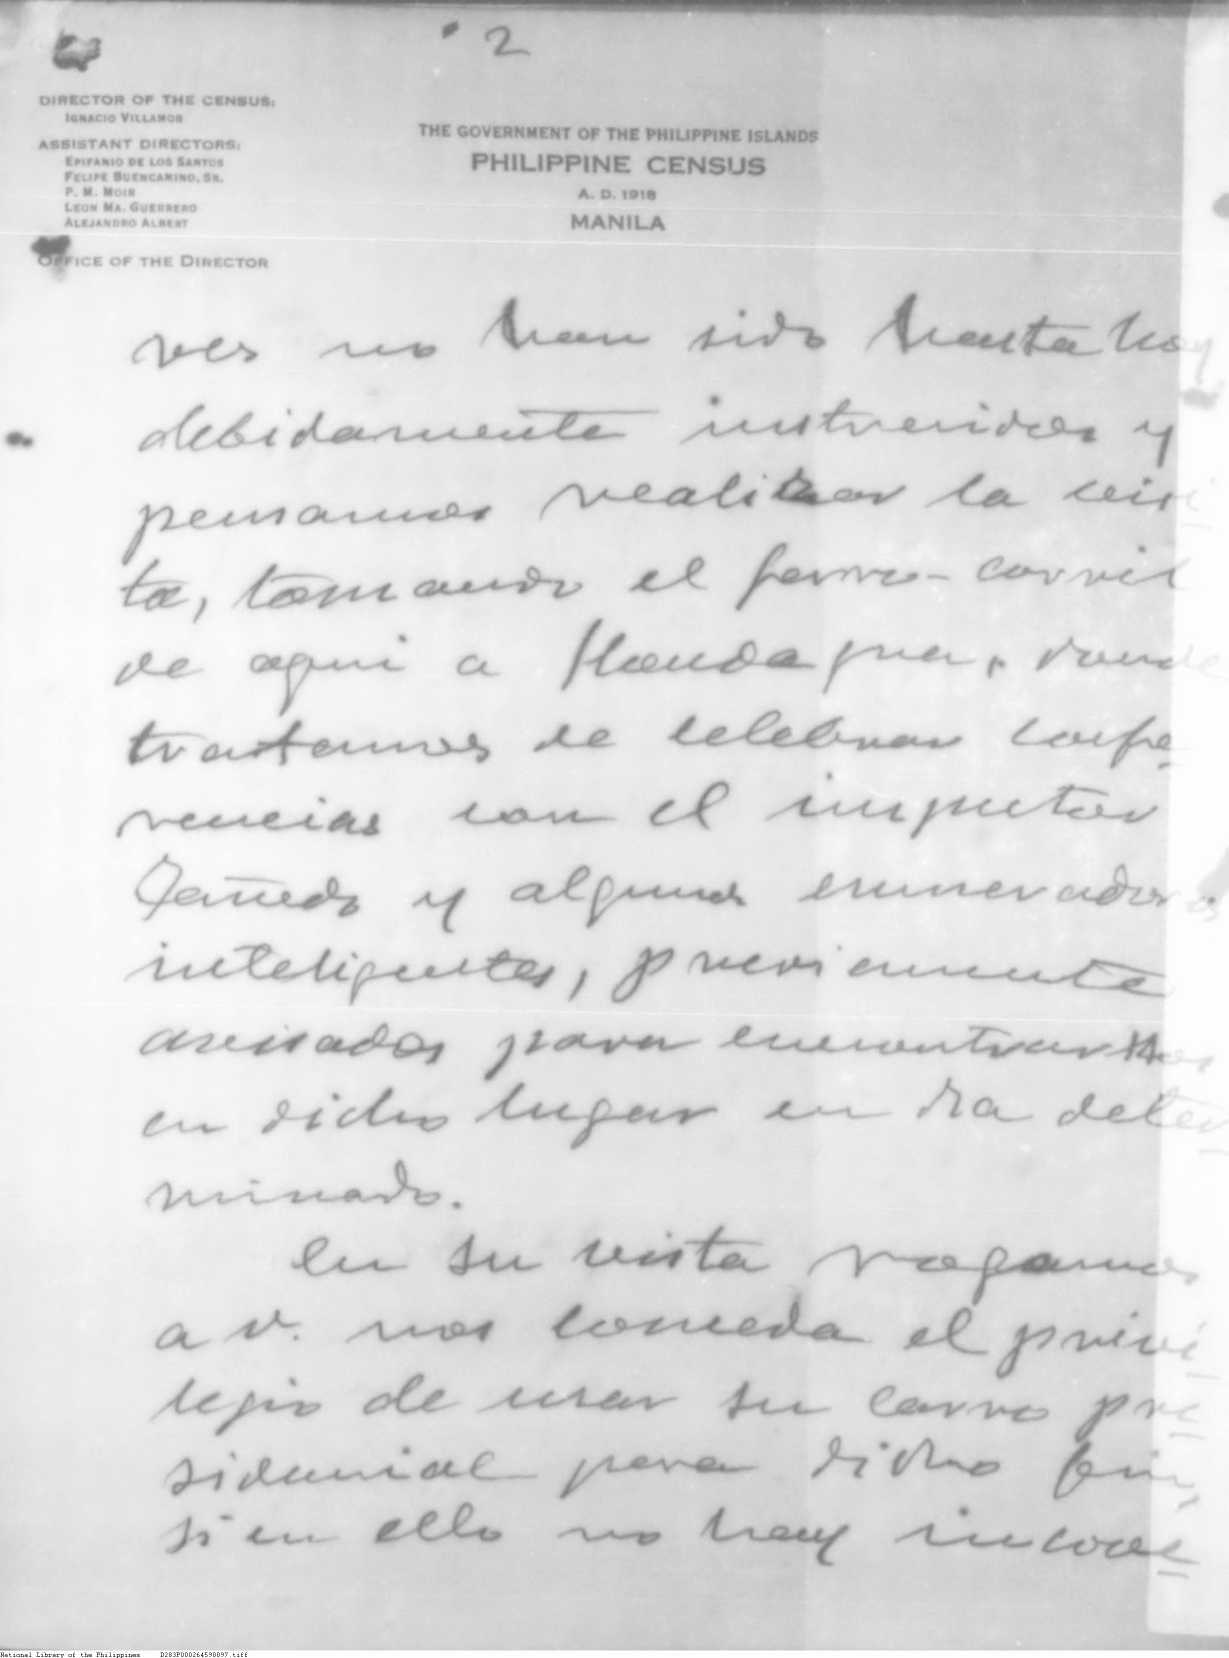 2
DIRECTOR OF THE CENSUS:
IGNACIO VILLAMOR
ASSISTANT DIRECTORS:
EPIFANIO DE LOS SANTOS
FELIPE BUENCAMINO, SR.
P. M. MOIR
LEON MA. GUERRERO
ALEJANDRO ALBERT
OFFICE OF THE DIRECTOR
THE GOVERNMENT OF THE PHILIPPINE ISLANDS
PHILIPPINE CENSUS
A. D. 1918
MANILA
res no han sido hasta hoy
debidamente instruidos y
pensamos realizar la visi
ta, tomando el ferro-carril
de aqui a donde
tratamos de celebrar confe-
rencias con el inspector
y algunos enumeradores
inteligentes, previamente
avisados para encontrarnos
en dicho lugar en dia deter-
minado.
En su vista rogamos
a V. nos conceda el privi-
legio de usar su carro pre-
sidencial para dicho fin,
si en ello no hay incove-
National Library of the Philippines D283P000264598097.tiff